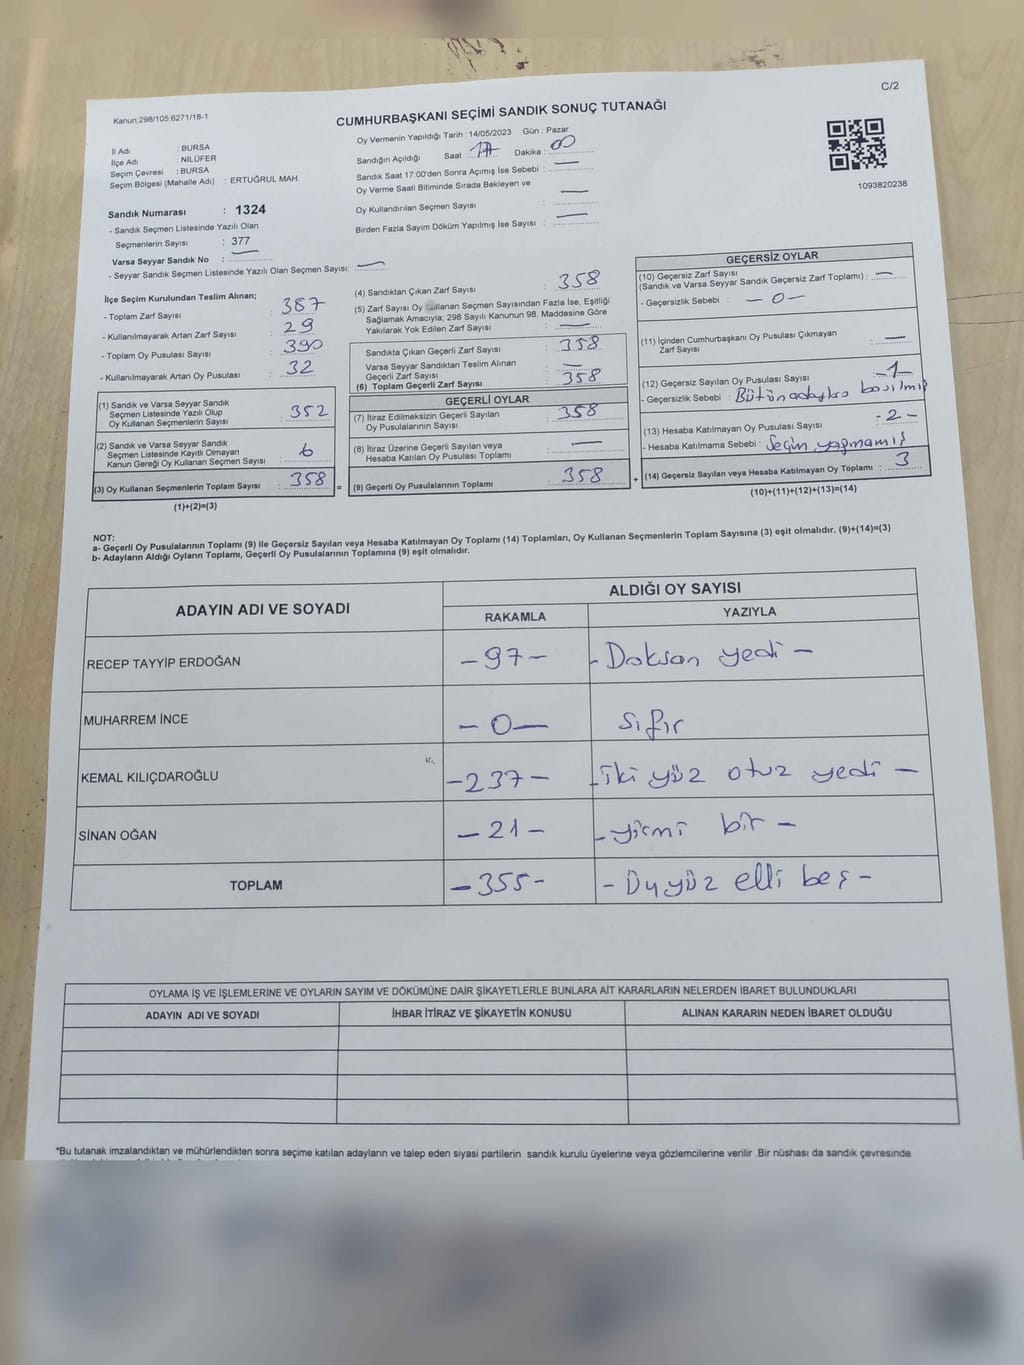 C/2
Kanun;298/105;6271/18-1
CUMHURBAŞKANI SEÇİMİ SANDIK SONUÇ TUTANAĞI
Oy Vermenin Yapıldığı Tarih : 14/05/2023 Gün : Pazar
İl Adı : BURSA
İlçe Adı : NİLÜFER
Seçim Çevresi : BURSA
Seçim Bölgesi (Mahalle Adı) : ERTUĞRUL MAH.
Sandık Numarası : 1324
- Sandık Seçmen Listesinde Yazılı Olan
Seçmenlerin Sayısı : 377
Varsa Seyyar Sandık No :
- Seyyar Sandık Seçmen Listesinde Yazılı Olan Seçmen Sayısı: —
Sandığın Açıldığı Saat : 17 Dakika : 00
Sandık Saat 17:00'den Sonra Açımış İse Sebebi : —
Oy Verme Saati Bitiminde Sırada Bekleyen ve
Oy Kullandırılan Seçmen Sayısı : —
Birden Fazla Sayım Döküm Yapılmış İse Sayısı : —
1093820238
İlçe Seçim Kurulundan Teslim Alınan;
- Toplam Zarf Sayısı : 387
- Kullanılmayarak Artan Zarf Sayısı : 29
- Toplam Oy Pusulası Sayısı : 390
- Kullanılmayarak Artan Oy Pusulası : 32
(1) Sandık ve Varsa Seyyar Sandık
Seçmen Listesinde Yazılı Olup
Oy Kullanan Seçmenlerin Sayısı : 352
(2) Sandık ve Varsa Seyyar Sandık
Seçmen Listesinde Kayıtlı Olmayan
Kanun Gereği Oy Kullanan Seçmen Sayısı : 6
(3) Oy Kullanan Seçmenlerin Toplam Sayısı : 358
(1)+(2)=(3)
=
(4) Sandıktan Çıkan Zarf Sayısı : 358
(5) Zarf Sayısı Oy Kullanan Seçmen Sayısından Fazla İse, Eşitliği
Sağlamak Amacıyla; 298 Sayılı Kanunun 98. Maddesine Göre
Yakılarak Yok Edilen Zarf Sayısı : —
Sandıkta Çıkan Geçerli Zarf Sayısı : 358
Varsa Seyyar Sandıktan Teslim Alınan
Geçerli Zarf Sayısı : —
(6) Toplam Geçerli Zarf Sayısı : 358
GEÇERLİ OYLAR
(7) İtiraz Edilmeksizin Geçerli Sayılan
Oy Pusulalarının Sayısı : 358
(8) İtiraz Üzerine Geçerli Sayılan veya
Hesaba Katılan Oy Pusulası Toplamı : —
(9) Geçerli Oy Pusulalarının Toplamı : 358
+
GEÇERSİZ OYLAR
(10) Geçersiz Zarf Sayısı
(Sandık ve Varsa Seyyar Sandık Geçersiz Zarf Toplamı) : —
- Geçersizlik Sebebi : — 0 —
(11) İçinden Cumhurbaşkanı Oy Pusulası Çıkmayan
Zarf Sayısı : —
(12) Geçersiz Sayılan Oy Pusulası Sayısı : -1-
- Geçersizlik Sebebi : Bütün adaylara basılmış
(13) Hesaba Katılmayan Oy Pusulası Sayısı : -2-
- Hesaba Katılmama Sebebi : Seçim yapmamış
(14) Geçersiz Sayılan veya Hesaba Katılmayan Oy Toplamı : 3
(10)+(11)+(12)+(13)=(14)
NOT:
a- Geçerli Oy Pusulalarının Toplamı (9) ile Geçersiz Sayılan veya Hesaba Katılmayan Oy Toplamı (14) Toplamları, Oy Kullanan Seçmenlerin Toplam Sayısına (3) eşit olmalıdır. (9)+(14)=(3)
b- Adayların Aldığı Oyların Toplamı, Geçerli Oy Pusulalarının Toplamına (9) eşit olmalıdır.
ADAYIN ADI VE SOYADI
ALDIĞI OY SAYISI
RAKAMLA YAZIYLA
RECEP TAYYİP ERDOĞAN -97- - Doksan yedi -
MUHARREM İNCE - 0 - Sıfır
KEMAL KILIÇDAROĞLU Kı, -237- - iki yüz otuz yedi -
SİNAN OĞAN - 21 - - yirmi bir -
TOPLAM -355- - Üçyüz elli beş -
OYLAMA İŞ VE İŞLEMLERİNE VE OYLARIN SAYIM VE DÖKÜMÜNE DAİR ŞİKAYETLERLE BUNLARA AİT KARARLARIN NELERDEN İBARET BULUNDUKLARI
ADAYIN ADI VE SOYADI İHBAR İTİRAZ VE ŞİKAYETİN KONUSU ALINAN KARARIN NEDEN İBARET OLDUĞU
*Bu tutanak imzalandıktan ve mühürlendikten sonra seçime katılan adayların ve talep eden siyasi partilerin sandık kurulu üyelerine veya gözlemcilerine verilir .Bir nüshası da sandık çevresinde